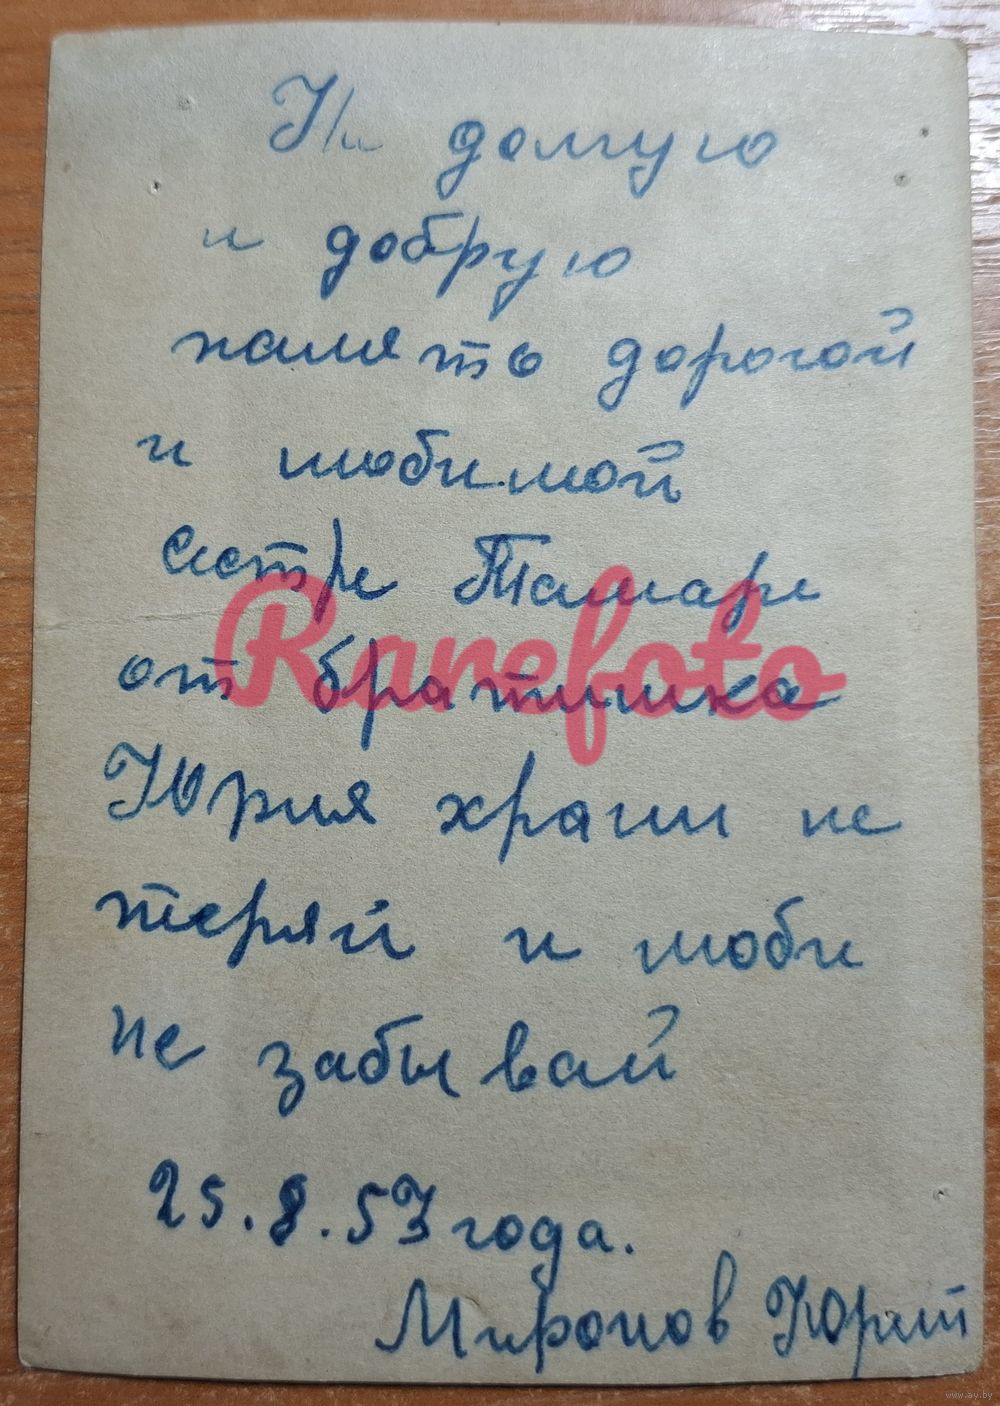 На долгую
и добрую
память дорогой
и любимой
сестре Тамаре
от братишка
Юрия храни не
теряй и люби
не забывай
25.8.53 года.
Миронов Юрий
Rarefoto
www.ay.by